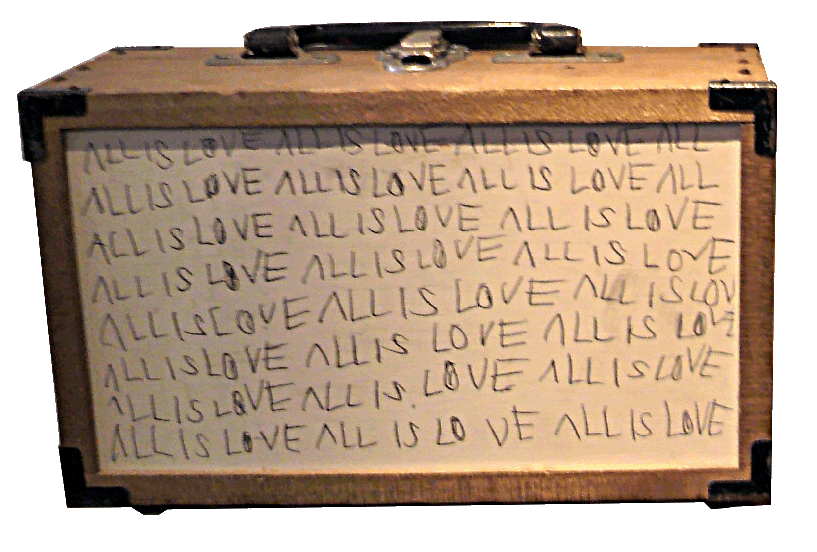 ALL IS LOVE ALL IS LOVE ALL IS LOVE ALL
ALL IS LOVE ALL IS LOVE ALL IS LOVE ALL
ALL IS LOVE ALL IS LOVE ALL IS LOVE
ALL IS LOVE ALL IS LOVE ALL IS LOVE
ALL IS LOVE ALL IS LOVE ALL IS LOV
ALL IS LOVE ALL IS LOVE ALL IS LOVE
ALL IS LOVE ALL IS. LOVE ALL IS LOVE
ALL IS LOVE ALL IS LO VE ALL IS LOVE